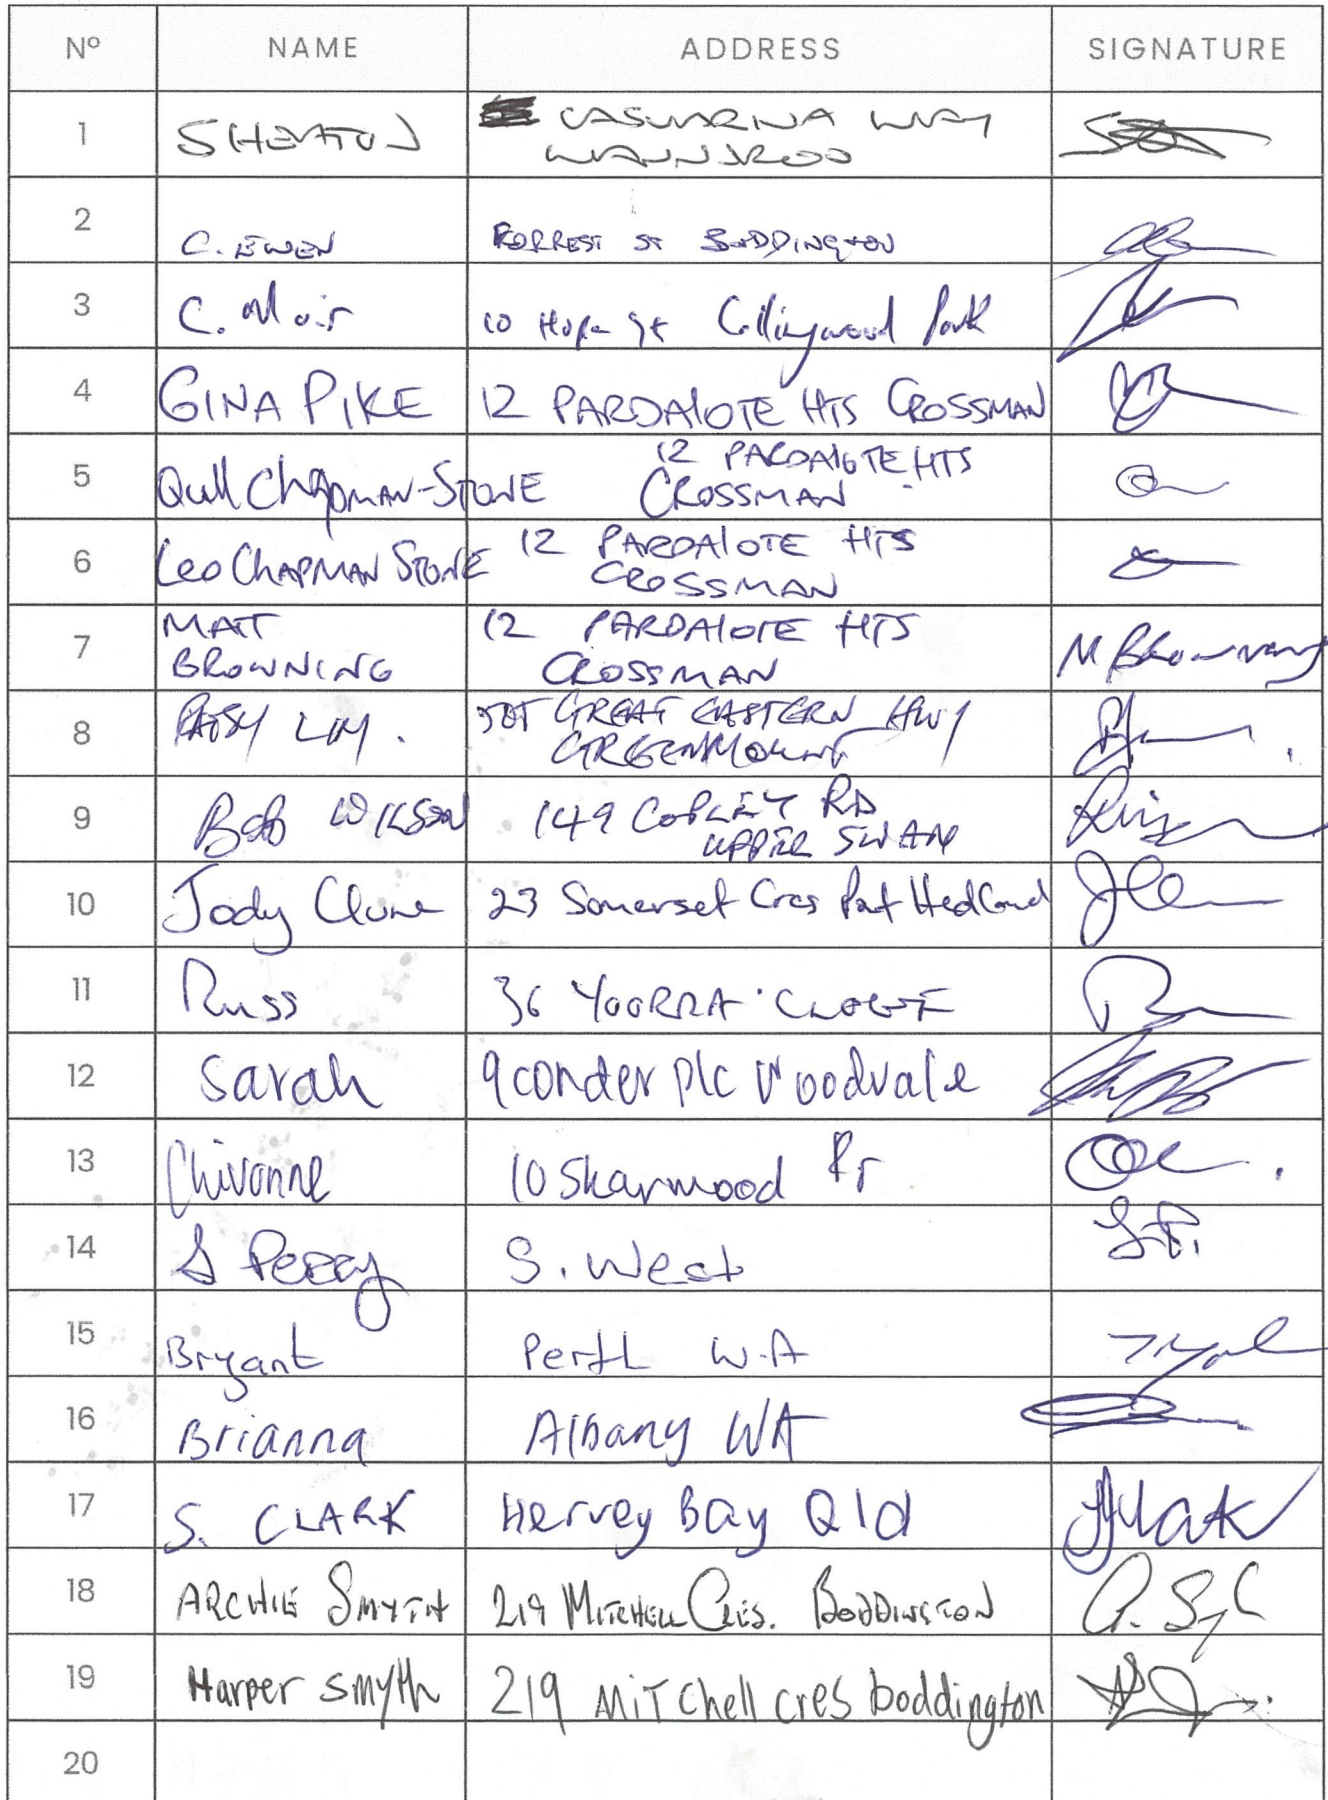 Nº NAME ADDRESS SIGNATURE
1 SHEATON CASUARINA WAY
WANNEROO
2 C. EWEN FORREST ST BODDINGTON
3 C. Moir 10 Hope St Collingwood Park
4 GINA PIKE 12 PARDALOTE HTS CROSSMAN
5 Qull Chapman-STONE 12 PARDALOTE HTS
CROSSMAN
6 Leo CHAPMAN STONE 12 PARDALOTE HTS
CROSSMAN
7 MATT 12 PARDALOTE HTS
BROWNING CROSSMAN M Browning
8 PATSY LIM. GREAT EASTERN HWY
GREENMOUNT
9 Bob WILSON 149 COPLEY RD
UPPER SWAN
10 Jody Clune 23 Somerset Cres Port Hedland
11 Russ 36 YOORRA CLOSE
12 Sarah 9 conder plc Woodvale
13 Chivonne 10 Skarwood Pr
14 S Perry S. West S.P.
15 Bryant Perth W.A
16 Brianna Albany WA
17 S. CLARK Hervey Bay Qld
18 ARCHIE SMYTH 219 MITCHELL CRES. BODDINGTON
19 Harper smyth 219 MiTChell cres boddington
20